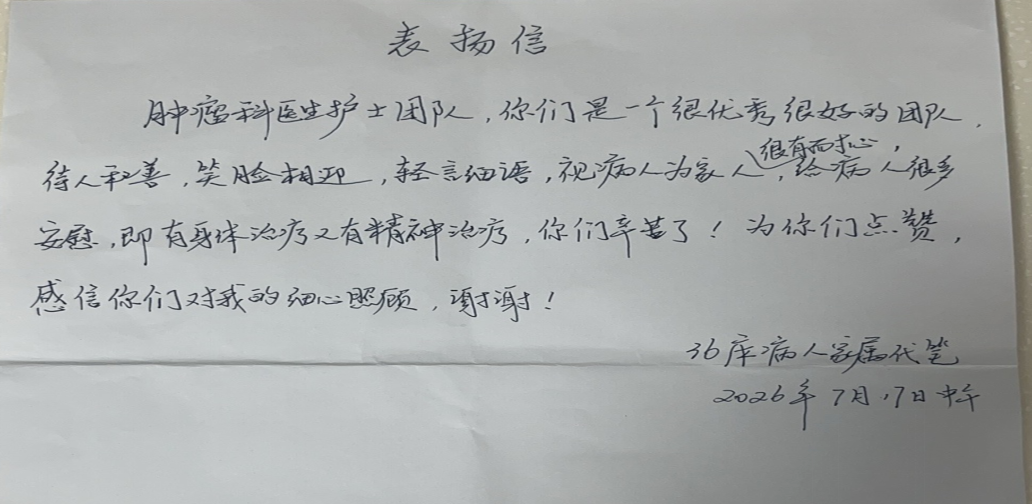 表扬信
肿瘤科医生护士团队，你们是一个很优秀很好的团队，
待人和善，笑脸相迎，轻言细语，视病人为家人，很有耐心，给病人很多
安慰，即有身体治疗又有精神治疗，你们辛苦了！为你们点赞，
感信你们对我的细心照顾，谢谢！
36床病人家属代笔
2026年7月17日中午